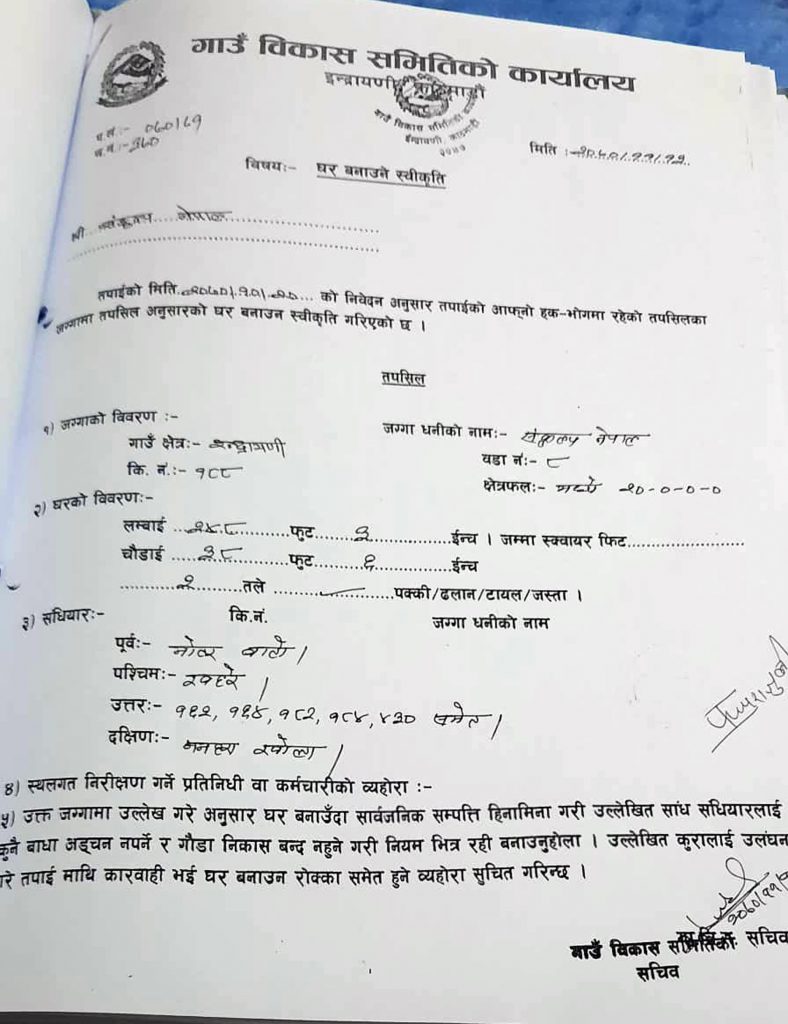 गाउँ विकास समितिको कार्यालय
इन्द्रायणी काठमाडौं
गाउँ विकास समितिको
इन्द्रायणी, काठमाडौं
२०४७
प.सं.:- ०६०/६१
च.नं.:- ३६०
मिति :- २०६०/११/१२
विषय:- घर बनाउने स्वीकृति
श्री संकल्प नेपाल
तपाईको मिति २०६०/१०/२० को निवेदन अनुसार तपाईको आफ्नो हक-भोगमा रहेको तपसिलका
जग्गामा तपसिल अनुसारको घर बनाउन स्वीकृति गरिएको छ ।
तपसिल
१) जग्गाको विवरण :-
जग्गा धनीको नाम:- संकल्प नेपाल
गाउँ क्षेत्र:- इन्द्रायणी
वडा नं:- ८
कि. नं.:- १८८
क्षेत्रफल:- मध्ये २०-०-०-०
२) घरको विवरण:-
लम्बाई २४८ फुट ३ ईन्च । जम्मा स्क्वायर फिट
चौडाई ३८ फुट ६ ईन्च
२ तले पक्की/ढलान/टायल/जस्ता ।
३) सधियार:- कि.नं. जग्गा धनीको नाम
पूर्व:- मोटर बाटो ।
पश्चिम:- खहरे ।
उत्तर:- १६२, १६४, १८२, १८४, ४२० समेत ।
दक्षिण:- मनहरा खोला ।
४) स्थलगत निरीक्षण गर्ने प्रतिनिधी वा कर्मचारीको व्यहोरा :-
५) उक्त जग्गामा उल्लेख गरे अनुसार घर बनाउँदा सार्वजनिक सम्पत्ति हिनामिना गरी उल्लेखित सांध सधियारलाई
कुनै बाधा अड्चन नपर्ने र गौडा निकास बन्द नहुने गरी नियम भित्र रही बनाउनुहोला । उल्लेखित कुरालाई उलंघन
गरे तपाई माथि कारवाही भई घर बनाउन रोक्का समेत हुने व्यहोरा सुचित गरिन्छ ।
२०६०/११/१
गाउँ विकास समितिको सचिव
सचिव